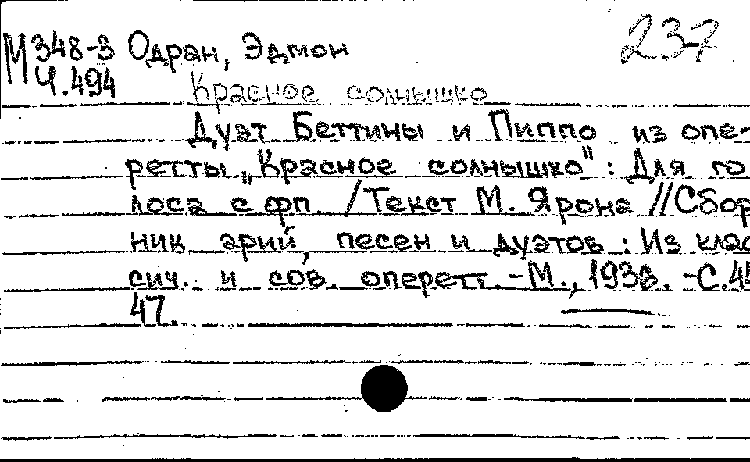 М348-3 Одран, Эдмон 237
Ч.494
Красное солнышко
Дуэт Беттины и Пиппо из опе-
ретты „Красное солнышко": Для го
лоса с фп. /Текст М. Ярона //Сбор
ник арий, песен и дуэтов : Из клас
сич. и сов. оперетт. -М., 1938. -С.45
47.